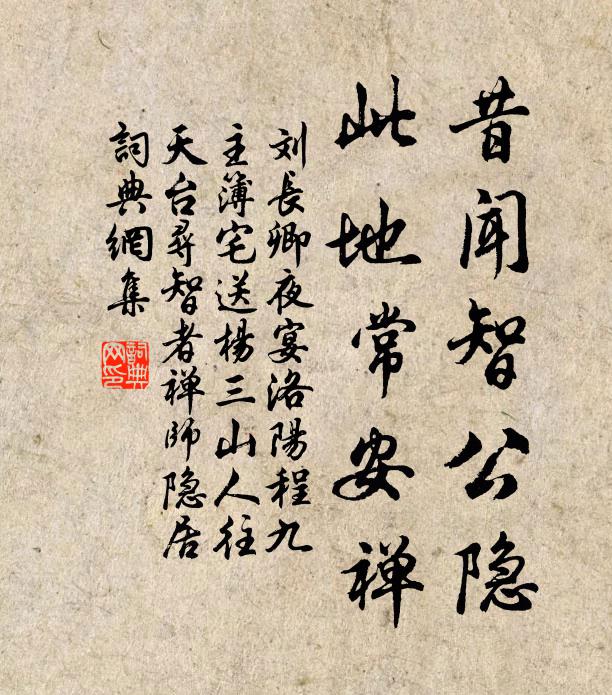 昔闻智公隐
此地常安禅
刘長卿夜宴洛陽程九
主簿宅送楊三山人往
天台尋智者禅師隐居
詞典網集
詞典
网印